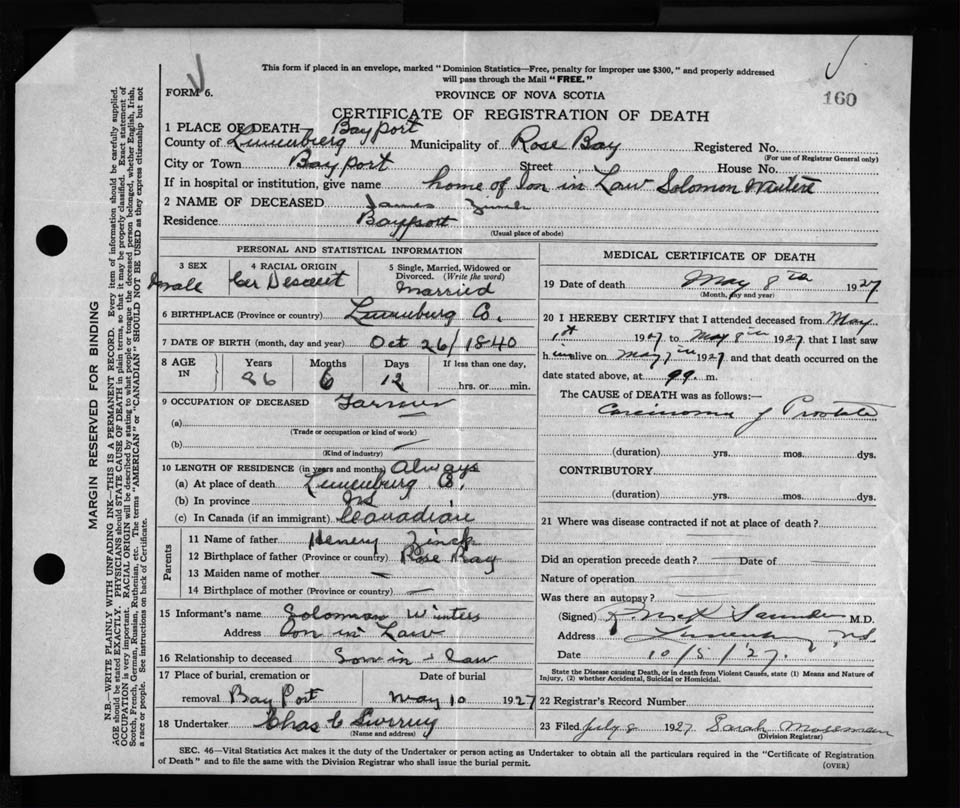 This form if placed in an envelope, marked "Dominion Statistics—Free, penalty for improper use $300," and properly addressed
will pass through the Mail "FREE."
FORM 6.
PROVINCE OF NOVA SCOTIA
160
CERTIFICATE OF REGISTRATION OF DEATH
1 PLACE OF DEATH Bayport
County of Lunenburg Municipality of Rose Bay Registered No.
(For use of Registrar General only)
City or Town Bayport Street House No.
If in hospital or institution, give name home of Son in Law Solomon
2 NAME OF DECEASED James Zinck
Residence Bayport
(Usual place of abode)
PERSONAL AND STATISTICAL INFORMATION
3 SEX male
4 RACIAL ORIGIN Ger Descent
5 Single, Married, Widowed or
Divorced. (Write the word)
Married
6 BIRTHPLACE (Province or country) Lunenburg Co.
7 DATE OF BIRTH (month, day and year) Oct 26/1840
8 AGE IN Years 86 Months 6 Days 12 If less than one day,
hrs. or min.
9 OCCUPATION OF DECEASED Farmer
(a)
(Trade or occupation or kind of work)
(b)
(Kind of industry)
10 LENGTH OF RESIDENCE (in years and months) Always
(a) At place of death Lunenburg Co.
(b) In province NS
(c) In Canada (if an immigrant) Canadian
Parents
11 Name of father Henery Zinck
12 Birthplace of father (Province or country) Rose Bay
13 Maiden name of mother —
14 Birthplace of mother (Province or country) —
15 Informant's name Soloman Winters
Address Son in Law
16 Relationship to deceased Son in law
17 Place of burial, cremation or Date of burial
removal Bay Port May 10 1927
18 Undertaker Chas C
(Name and address)
MEDICAL CERTIFICATE OF DEATH
19 Date of death May 8th 1927
(Month, day and year)
20 I HEREBY CERTIFY that I attended deceased from May
1st 1927 to May 8th 1927 that I last saw
him alive on May 7th 1927 and that death occurred on the
date stated above, at m.
The CAUSE OF DEATH was as follows:—
Carcinoma of Prostate
(duration) yrs. mos. dys.
CONTRIBUTORY
(duration) yrs. mos. dys.
21 Where was disease contracted if not at place of death?
Did an operation precede death? Date of
Nature of operation
Was there an autopsy?
(Signed) M.D.
Address Lunenburg, N.S.
Date 10/5/27.
State the Disease causing Death, or in death from Violent Causes, state (1) Means and Nature of
Injury, (2) whether Accidental, Suicidal or Homicidal.
22 Registrar's Record Number
23 Filed July 8 1927 Sarah Mossman
(Division Registrar)
SEC. 46—Vital Statistics Act makes it the duty of the Undertaker or person acting as Undertaker to obtain all the particulars required in the "Certificate of Registration
of Death" and to file the same with the Division Registrar who shall issue the burial permit.
(OVER)
MARGIN RESERVED FOR BINDING
N.B.—WRITE PLAINLY WITH UNFADING INK—THIS IS A PERMANENT RECORD. Every item of information should be carefully supplied.
AGE should be stated EXACTLY. PHYSICIANS should STATE CAUSE OF DEATH in plain terms, so that it may be properly classified. Exact statement of
OCCUPATION is very important. RACIAL ORIGIN will be described by stating to what people or tongue the deceased person belonged, whether English, Irish,
Scotch, French, German, Russian, Ruthenian, etc. The terms "AMERICAN" or "CANADIAN" SHOULD NOT BE USED as they express citizenship but not
a race or people. See instructions on back of Certificate.